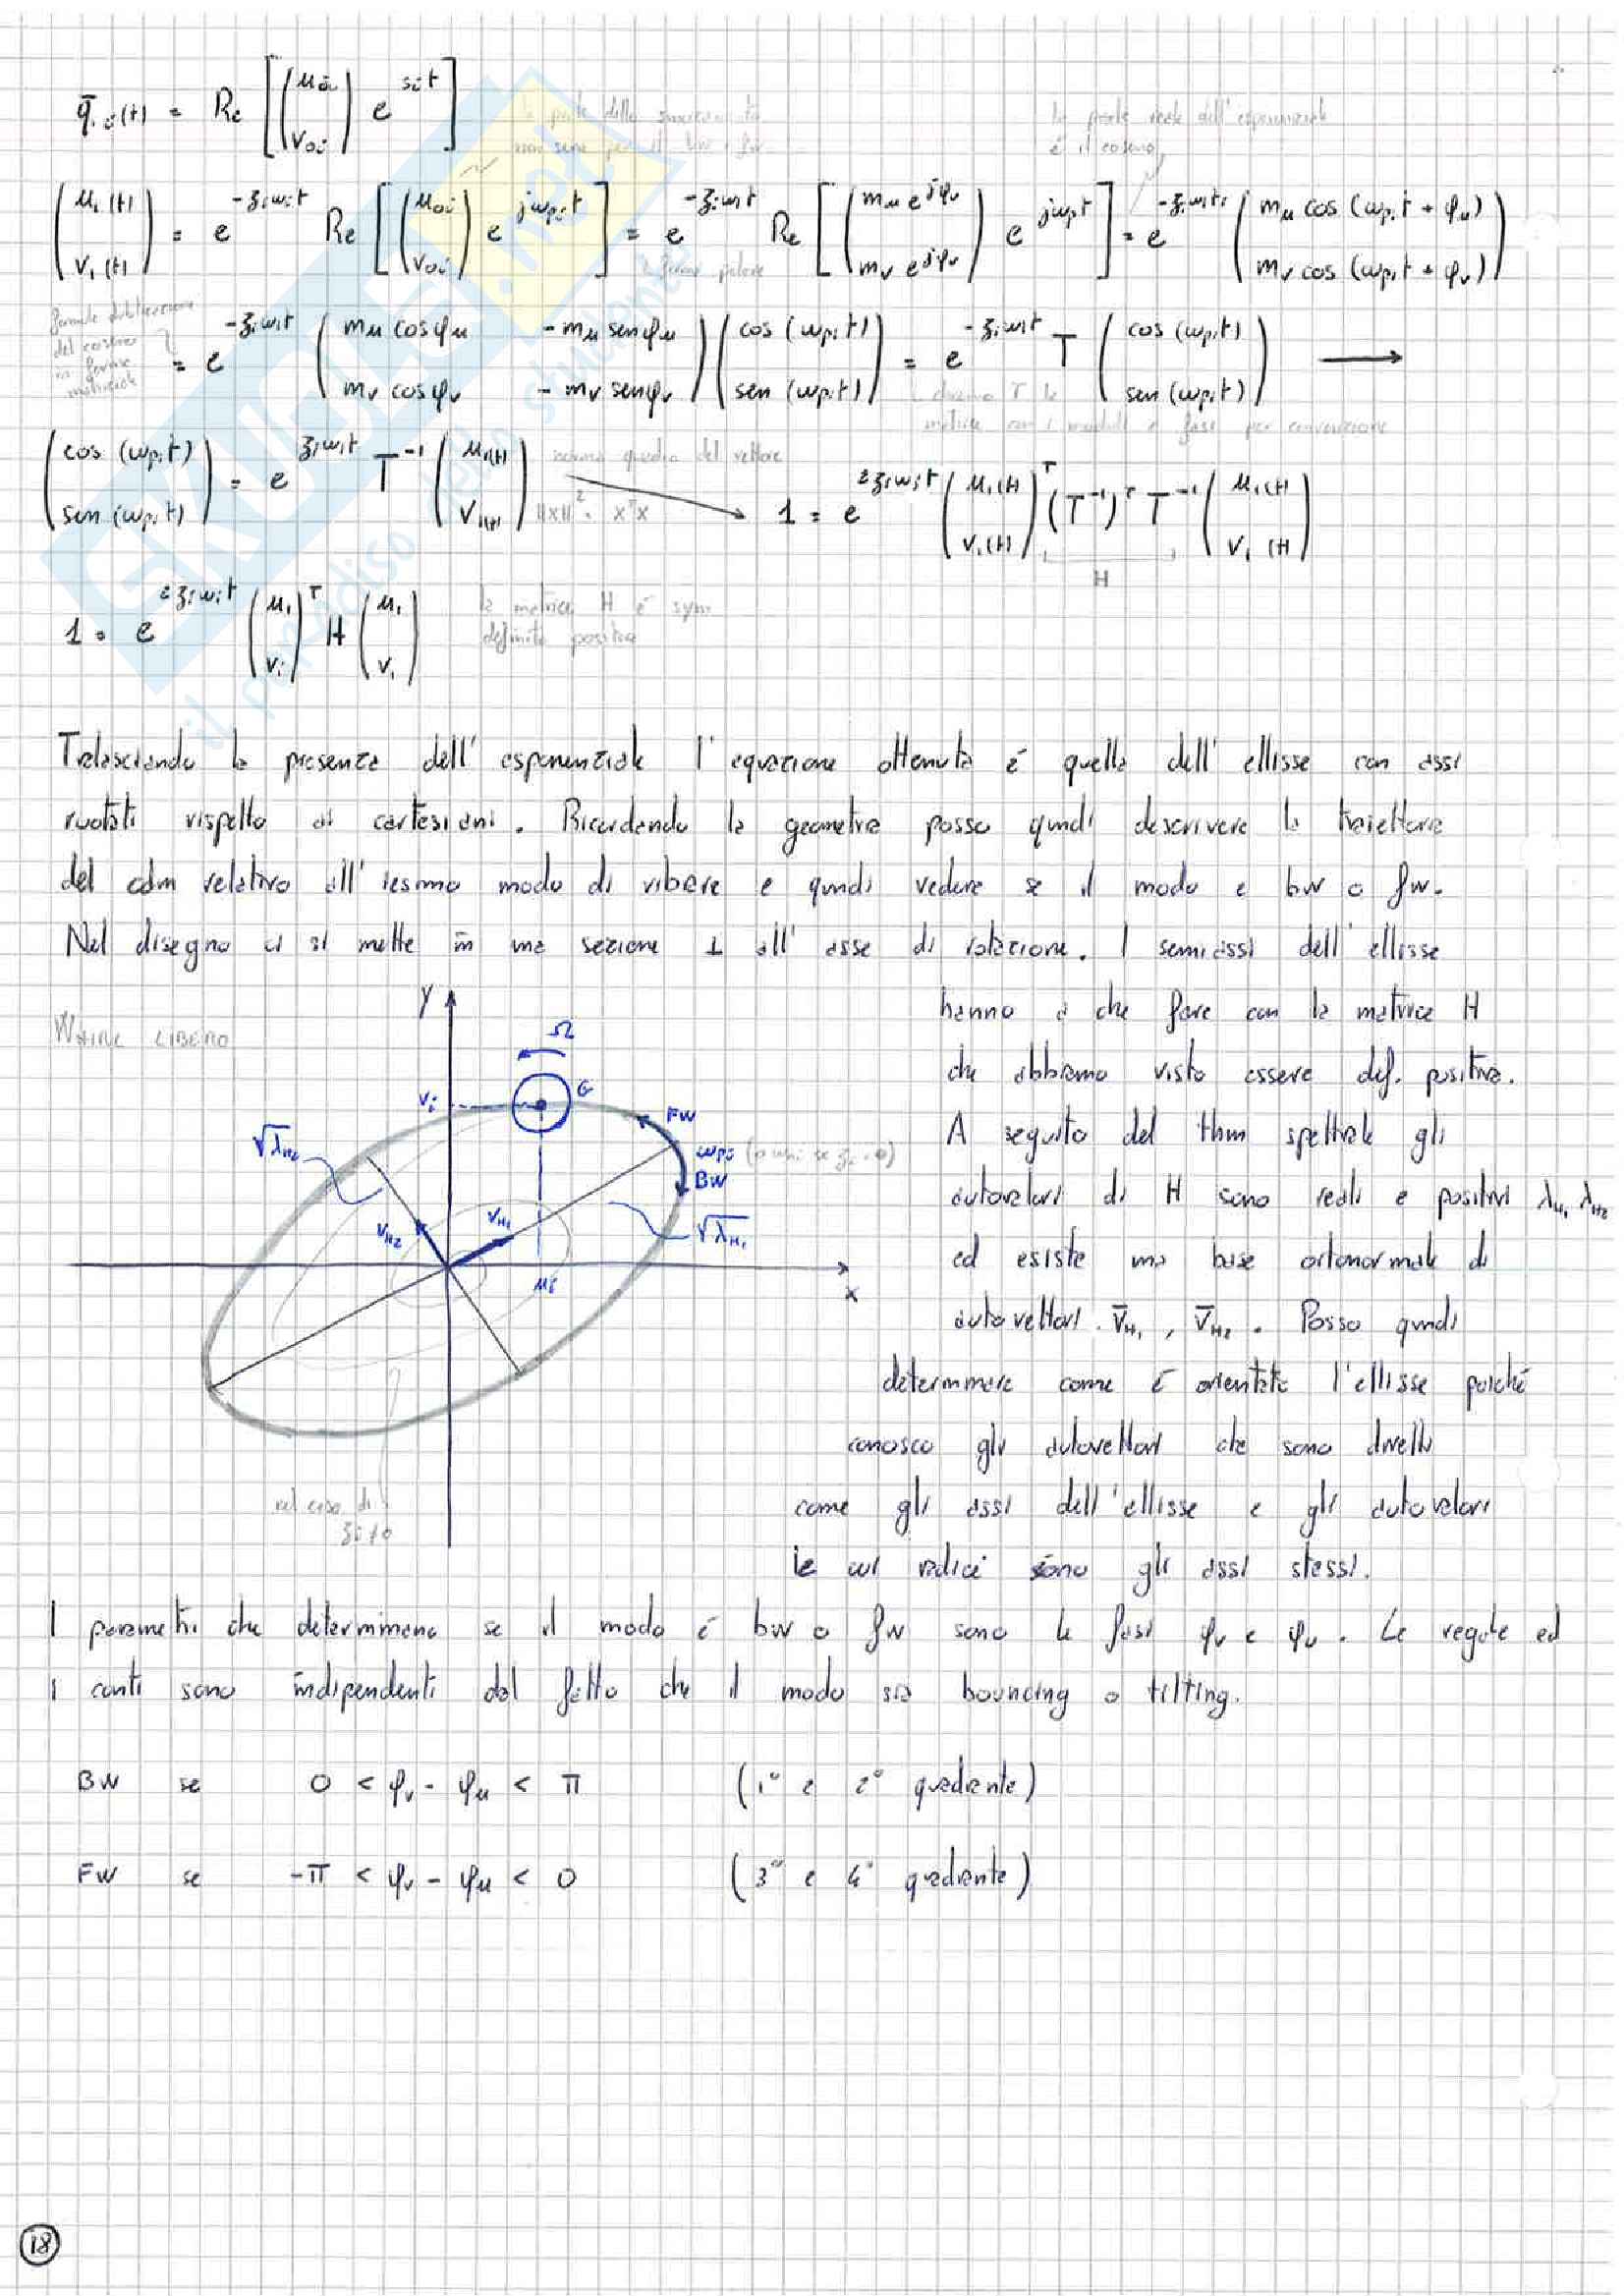 q̄ᵢ(t) = Re [ (u₀ᵢ ; v₀ᵢ) e^{sᵢt} ]
la parte dello smorzamento non serve per il bw e fw
la parte reale dell'esponenziale è il coseno
(uᵢ(t) ; vᵢ(t)) = e^{-ξᵢωᵢt} Re [ (u₀ᵢ ; v₀ᵢ) e^{jωpᵢt} ] = e^{-ξᵢωᵢt} Re [ (mᵤ e^{jφᵤ} ; mᵥ e^{jφᵥ}) e^{jωpᵢt} ] = e^{-ξᵢωᵢt} (mᵤ cos (ωpᵢt + φᵤ) ; mᵥ cos (ωpᵢt + φᵥ))
forma polare
del coseno in forma matriciale
= e^{-ξᵢωᵢt} (mᵤ cosφᵤ  -mᵤ senφᵤ ; mᵥ cosφᵥ  -mᵥ senφᵥ) (cos (ωpᵢt) ; sen (ωpᵢt)) = e^{-ξᵢωᵢt} T (cos (ωpᵢt) ; sen (ωpᵢt)) →
chiamo T la matrice con i moduli e fasi per convenzione
(cos (ωpᵢt) ; sen (ωpᵢt)) = e^{ξᵢωᵢt} T⁻¹ (uᵢ(t) ; vᵢ(t)) norma quadra del vettore ||x||² = xᵀx → 1 = e^{2ξᵢωᵢt} (uᵢ(t) ; vᵢ(t))ᵀ (T⁻¹)ᵀ T⁻¹ (uᵢ(t) ; vᵢ(t))
H
1 = e^{2ξᵢωᵢt} (uᵢ ; vᵢ)ᵀ H (uᵢ ; vᵢ) la matrice H è sym definita positiva
Tralasciando la presenza dell' esponenziale l'equazione ottenuta è quella dell' ellisse con assi
ruotati rispetto ai cartesiani. Ricordando la geometria posso quindi descrivere la traiettoria
del cdm relativo all' iesimo modo di vibrare e quindi vedere se il modo è bw o fw.
Nel disegno ci si mette in una sezione ⊥ all' asse di rotazione. I semiassi dell' ellisse
hanno a che fare con la matrice H
che abbiamo visto essere def. positiva.
A seguito del thm spettrale gli
autovalori di H sono reali e positivi λH₁ λH₂
ed esiste una base ortonormale di
autovettori. v̄H₁, v̄H₂. Posso quindi
determinare come è orientata l'ellisse poiché
conosco gli autovettori che sono diretti
come gli assi dell'ellisse e gli autovalori
le cui radici sono gli assi stessi.
WHIRL LIBERO
y
Ω
vᵢ
G
FW
√λH₂
ωpᵢ (o ωᵢ se ξᵢ=0)
BW
vH₂
vH₁
√λH₁
uᵢ
x
nel caso di ξᵢ≠0
I parametri che determinano se il modo è bw o fw sono le fasi φᵥ e φᵤ. Le regole ed
i conti sono indipendenti dal fatto che il modo sia bouncing o tilting.
BW se 0 < φᵥ - φᵤ < π (1° e 2° quadrante)
FW se -π < φᵥ - φᵤ < 0 (3° e 4° quadrante)
18
SKUOLA.net
il paradiso dello studente